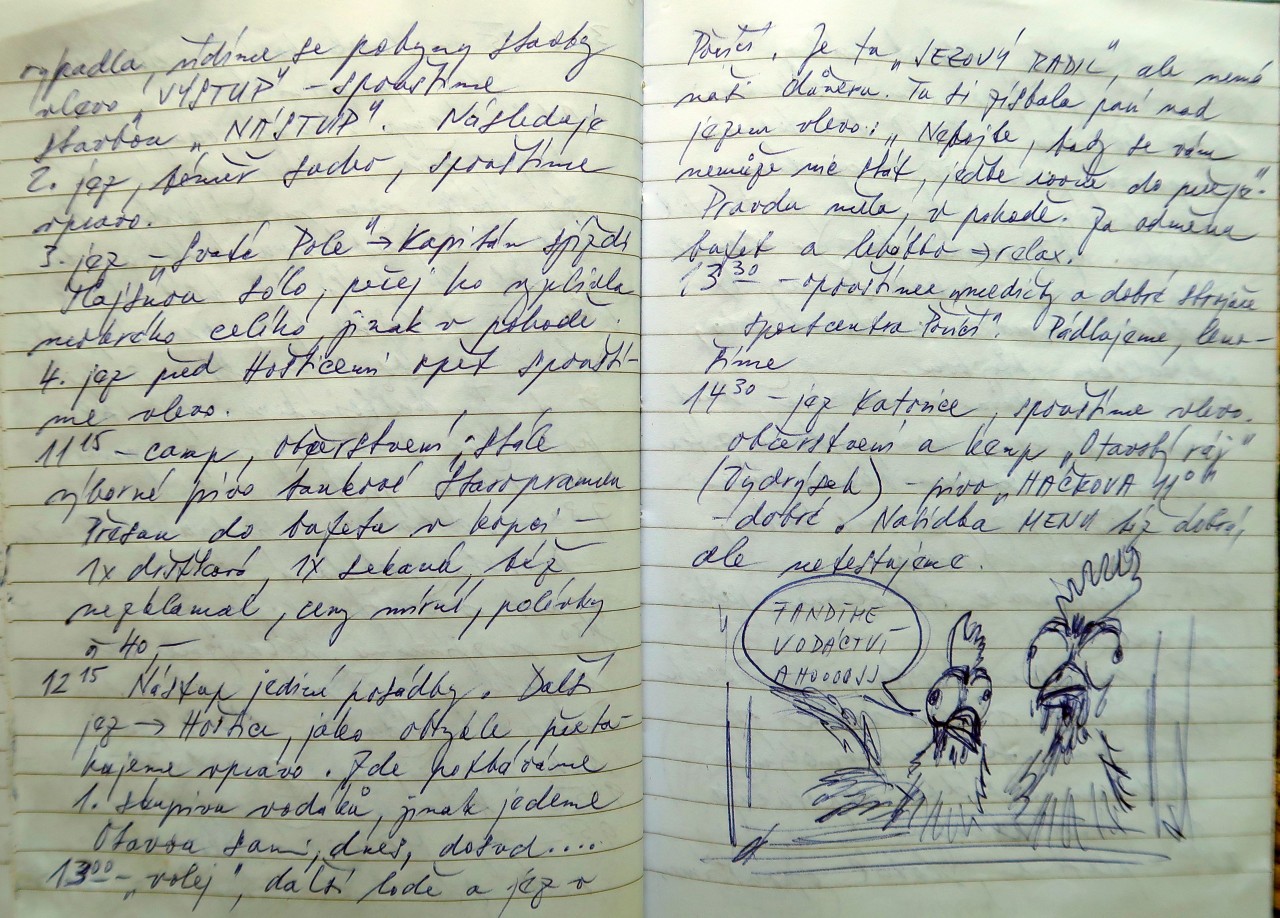 vypadla, řídíme se pokyny stavby
vlevo „VÝSTUP" – spouštíme
stavbou „NÁSTUP". Následuje
2. jez, téměř sucho, spouštíme
vpravo.
3. jez – „Svaté Pole" → Kapitán sjíždí
sólo, peřej ho vyklidla
celého jinak v pohodě.
4. jez před Hošticemi opět spouští-
me vlevo.
11 15 – camp, občerstvení, stále
výborné pivo tankové Staropramen
Přesun do bufetu v kopci –
1x držková, 1x sekaná, též
nezklamal, ceny mírné, polévky
á 40,–
12 15 Nástup jediné posádky. Další
jez → Hoštice, jako obvykle přeta-
hujeme vpravo. Zde potkáváme
1. skupinu vodáků, jinak jedeme
Otavou sami, dnes, dosud....
13 00 – „volej", další lodě a jez v
Poříčí. Je tu „JEZOVÝ RADIL", ale nemá
naši důvěru. Tu si získala paní nad
jezem vlevo: „Nebojte, tady se vám
nemůže nic stát, jeďte rovně do peřeje".
Pravdu měla, v pohodě. Za odměnu
bufet a lehátko → relax.
13 30 – opouštíme a dobré
sportcentra Poříčí". Pádlujeme, leno-
šíme
14 30 – jez Katovice, spouštíme vlevo.
občerstvení a kemp „Otavský ráj"
(Židrýsek) – pivo „HAČKOVA 11°"
– dobré. Nabídka MENU též dobrá,
ale netestujeme.
FANDÍME
VODÁCTVÍ
AHOOOJJ